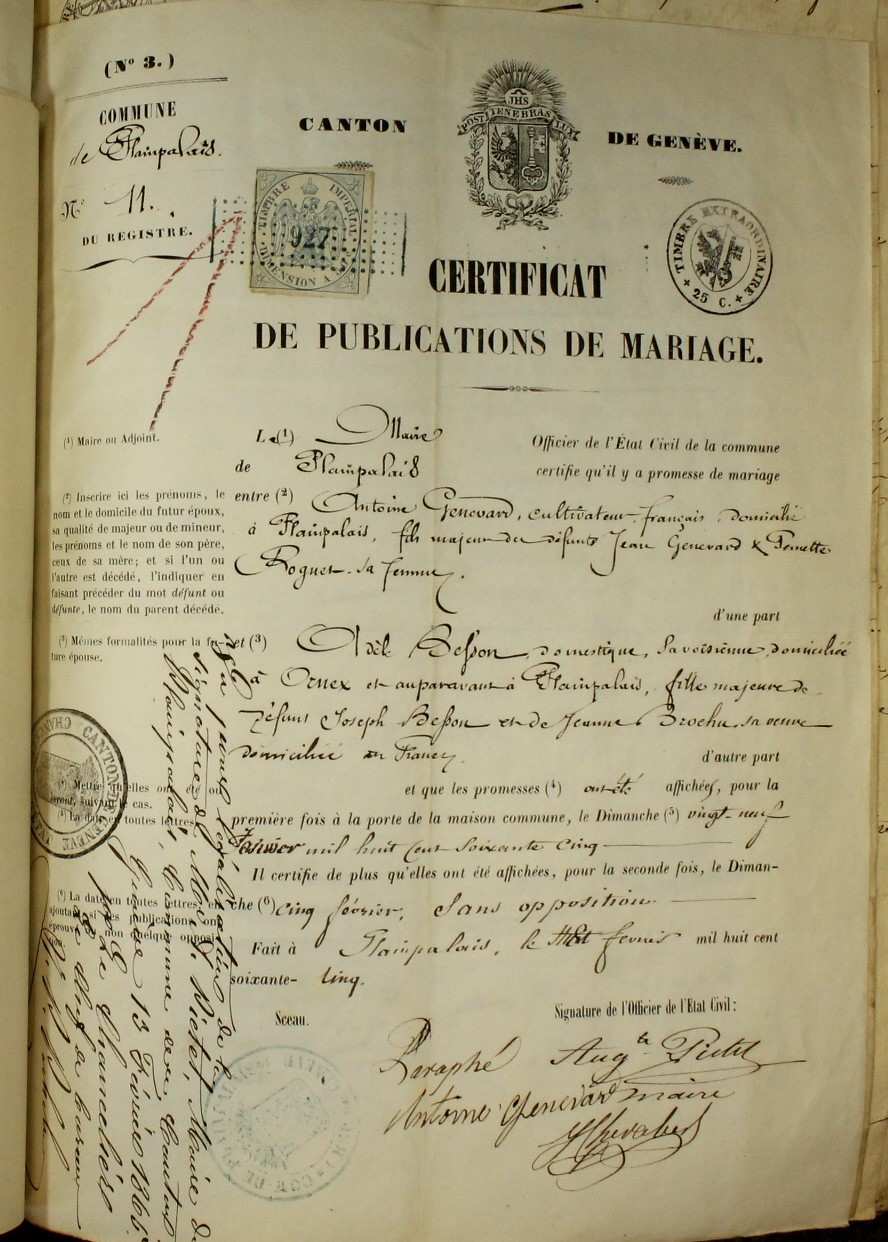 (Nº 3.)
COMMUNE
de Plainpalais.
Nº 11.
DU REGISTRE.
CANTON
DE GENÈVE.
JHS
POST TENEBRAS LUX
TIMBRE IMPÉRIAL
927
DIMENSION
TIMBRE EXTRAORDINAIRE
25 C.
CERTIFICAT
DE PUBLICATIONS DE MARIAGE.
(1) Maire ou Adjoint.
(2) Inscrire ici les prénoms, le
nom et le domicile du futur époux,
sa qualité de majeur ou de mineur,
les prénoms et le nom de son père,
ceux de sa mère; et si l'un ou
l'autre est décédé, l'indiquer en
faisant précéder du mot défunt ou
défunte, le nom du parent décédé.
(3) Mêmes formalités pour la fu-
ture épouse.
Le (1) Maire Officier de l'État Civil de la commune
de Plainpalais certifie qu'il y a promesse de mariage
entre (2) Antoine Genevard, cultivateur, français, domicilié
à Plainpalais, fils majeur des défunts Jean Genevard & Pernette
Roguet sa femme,
d'une part
et (3) Adèle Besson, domestique, Savoisienne, domiciliée
à Ornex et auparavant à Plainpalais, fille majeure de
défunt Joseph Besson et de Jeanne Brochu, sa veuve
domiciliée en France,
d'autre part
et que les promesses (4) ont été affichées, pour la
première fois à la porte de la maison commune, le Dimanche (5) vingt-neuf
Janvier mil huit cent soixante cinq
Il certifie de plus qu'elles ont été affichées, pour la seconde fois, le Diman-
che (6) cinq février, sans opposition
Fait à Plainpalais, le février mil huit cent
soixante-cinq.
Sceau.
Signature de l'Officier de l'Etat Civil:
Paraphé
Augte Pictet
Antoine Genevard
maire
(4) Mettre
suivant le cas.
(5) La date en toutes lettres.
(6) La date en toutes lettres, et
ajouter si les publications ont
éprouvé ou non quelque opposi-
tion.
Vu pour légalisation de la
signature de Mr. Pictet, Maire de
Plainpalais, Commune de ce Canton
Genève 13 Février 1865.